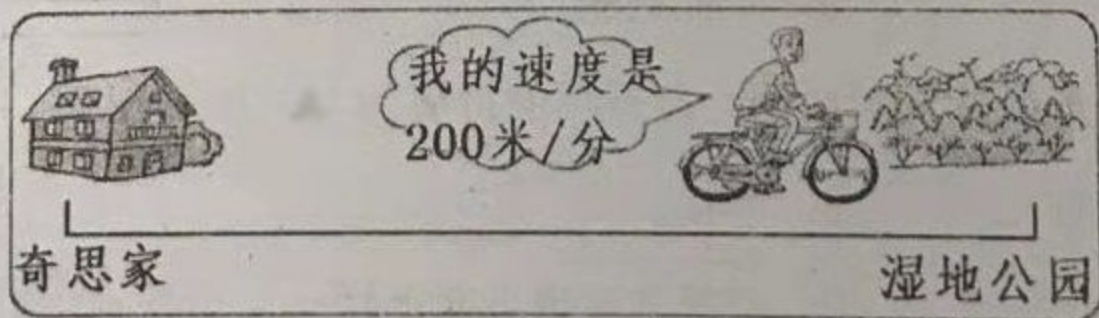 我的速度是
200米/分
奇思家
湿地公园